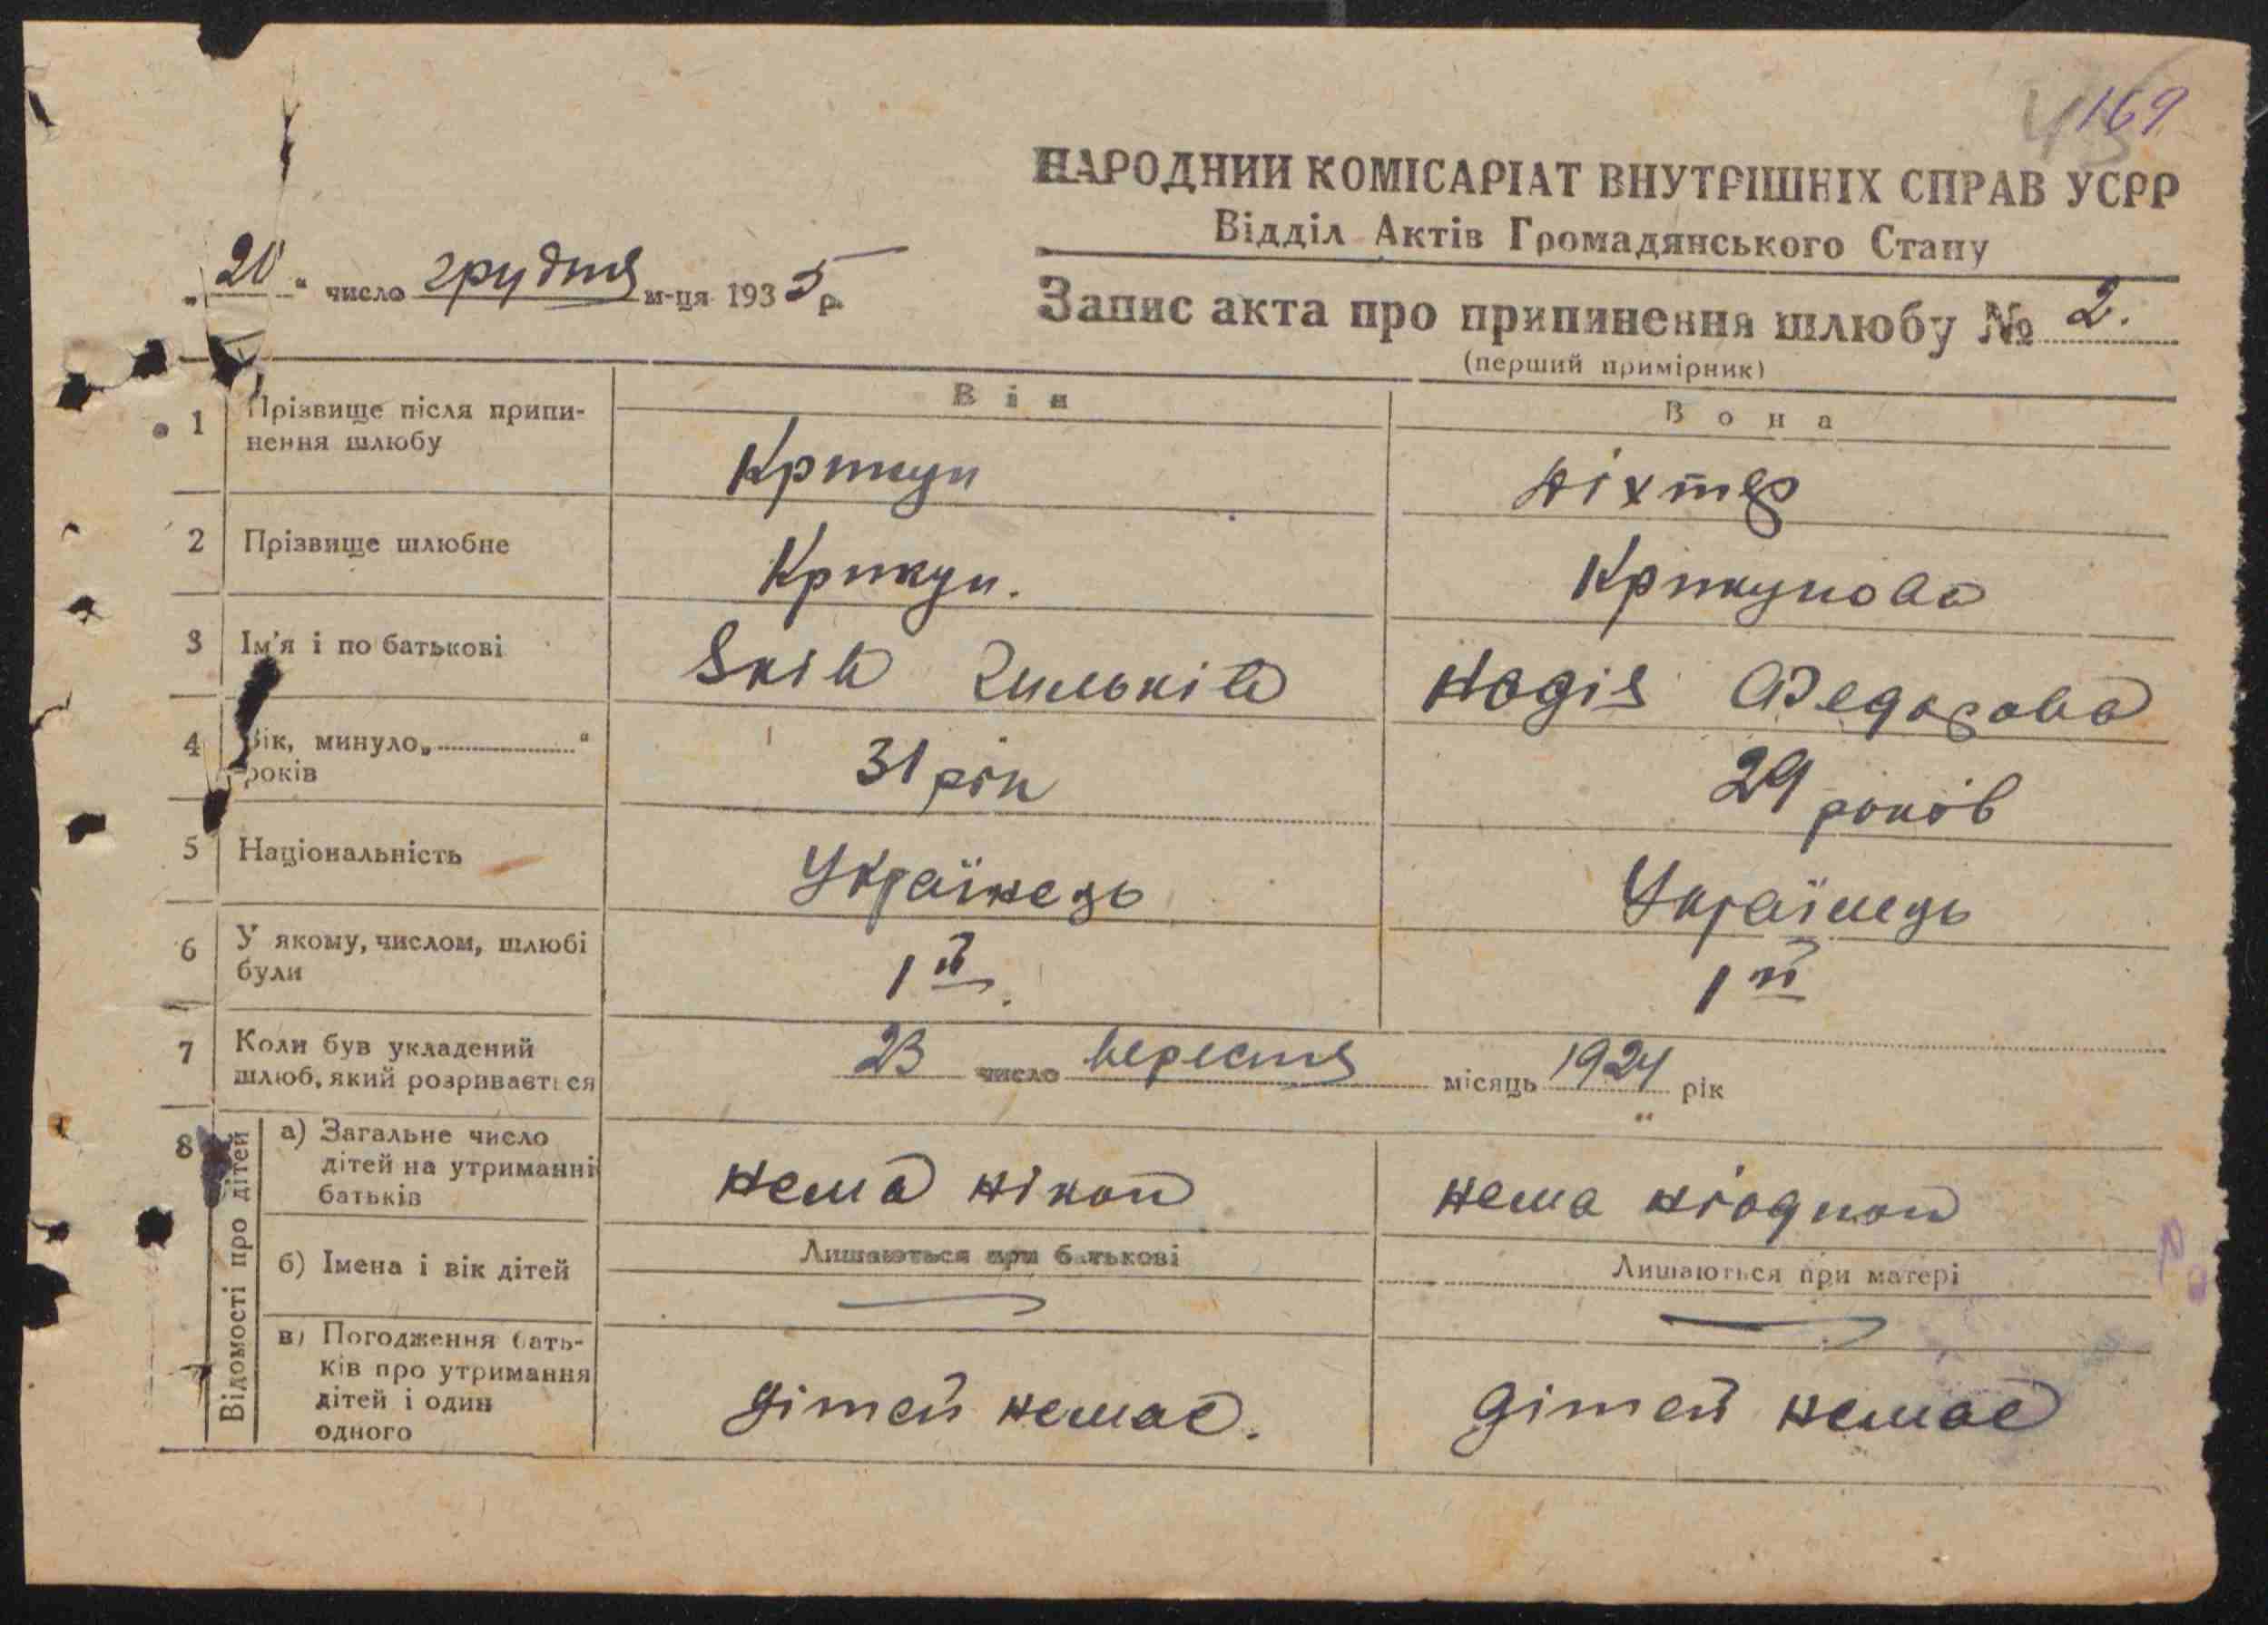 169
НАРОДНИЙ КОМІСАРІАТ ВНУТРІШНІХ СПРАВ УСРР
Відділ Актів Громадянського Стану
„20“ число грудня м-ця 1935 р.
Запис акта про припинення шлюбу № 2.
(перший примірник)
Він Вона
1 Прізвище після припи-
нення шлюбу Крикун Ніхтер
2 Прізвище шлюбне Крикун. Крикунова
3 Ім'я і по батькові Яків Надія Федорова
4 Вік, минуло „ “
років 31 рік 29 років
5 Національність Українець Українець
6 У якому, числом, шлюбі
були 1й. 1й
7 Коли був укладений
шлюб, який розривається 23 число вересня місяць 1924 рік
8 Відомості про дітей
а) Загальне число
дітей на утриманні
батьків нема нікого нема ніодного
б) Імена і вік дітей Лишаються при батькові Лишаються при матері
в) Погодження бать-
ків про утримання
дітей і один
одного дітей немає. дітей немає